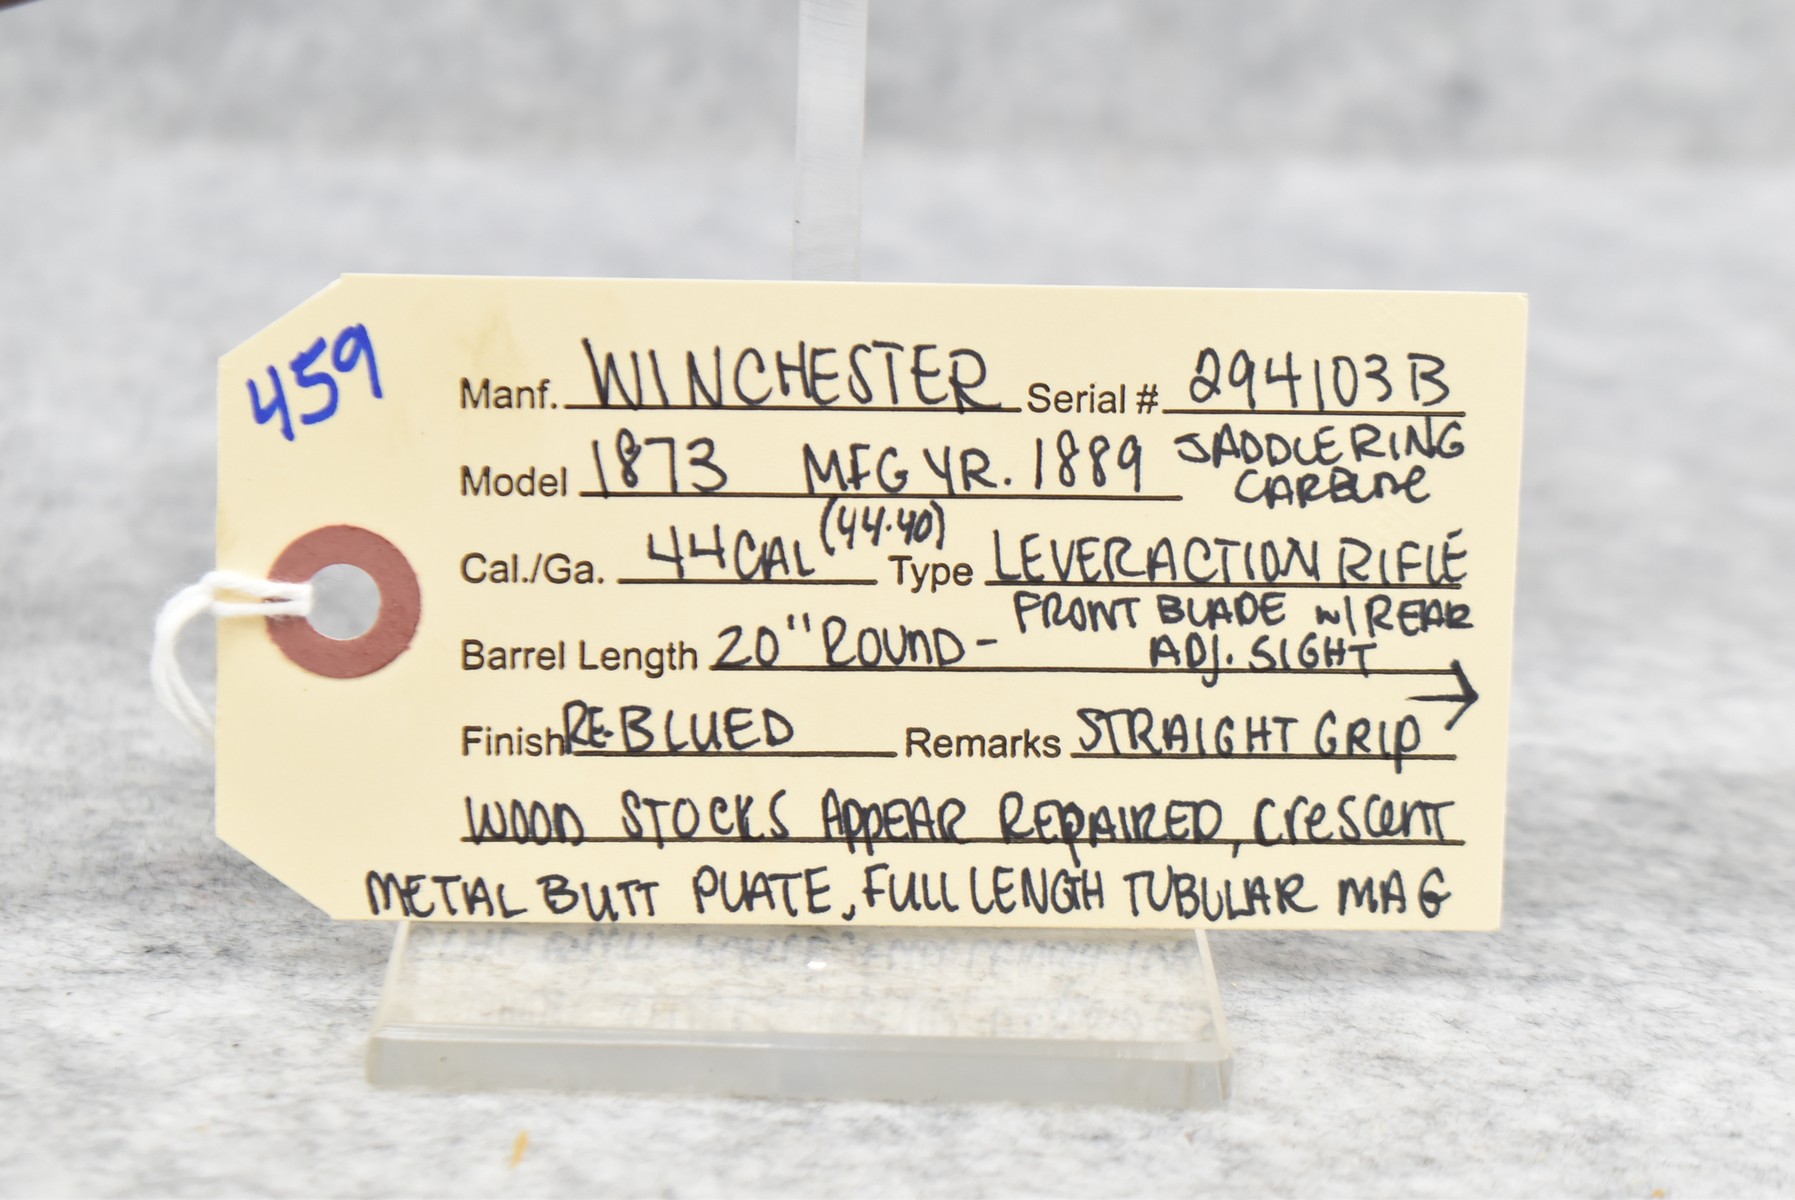 459
Manf. WINCHESTER Serial # 294103B
Model 1873 MFG YR. 1889 SADDLE RING
CARBINE
Cal./Ga. 44 CAL (44.40) Type LEVER ACTION RIFLE
FRONT BLADE w/ REAR
Barrel Length 20" ROUND - ADJ. SIGHT →
Finish RE-BLUED Remarks STRAIGHT GRIP
WOOD STOCKS APPEAR REPAIRED, CRESCENT
METAL BUTT PLATE, FULL LENGTH TUBULAR MAG